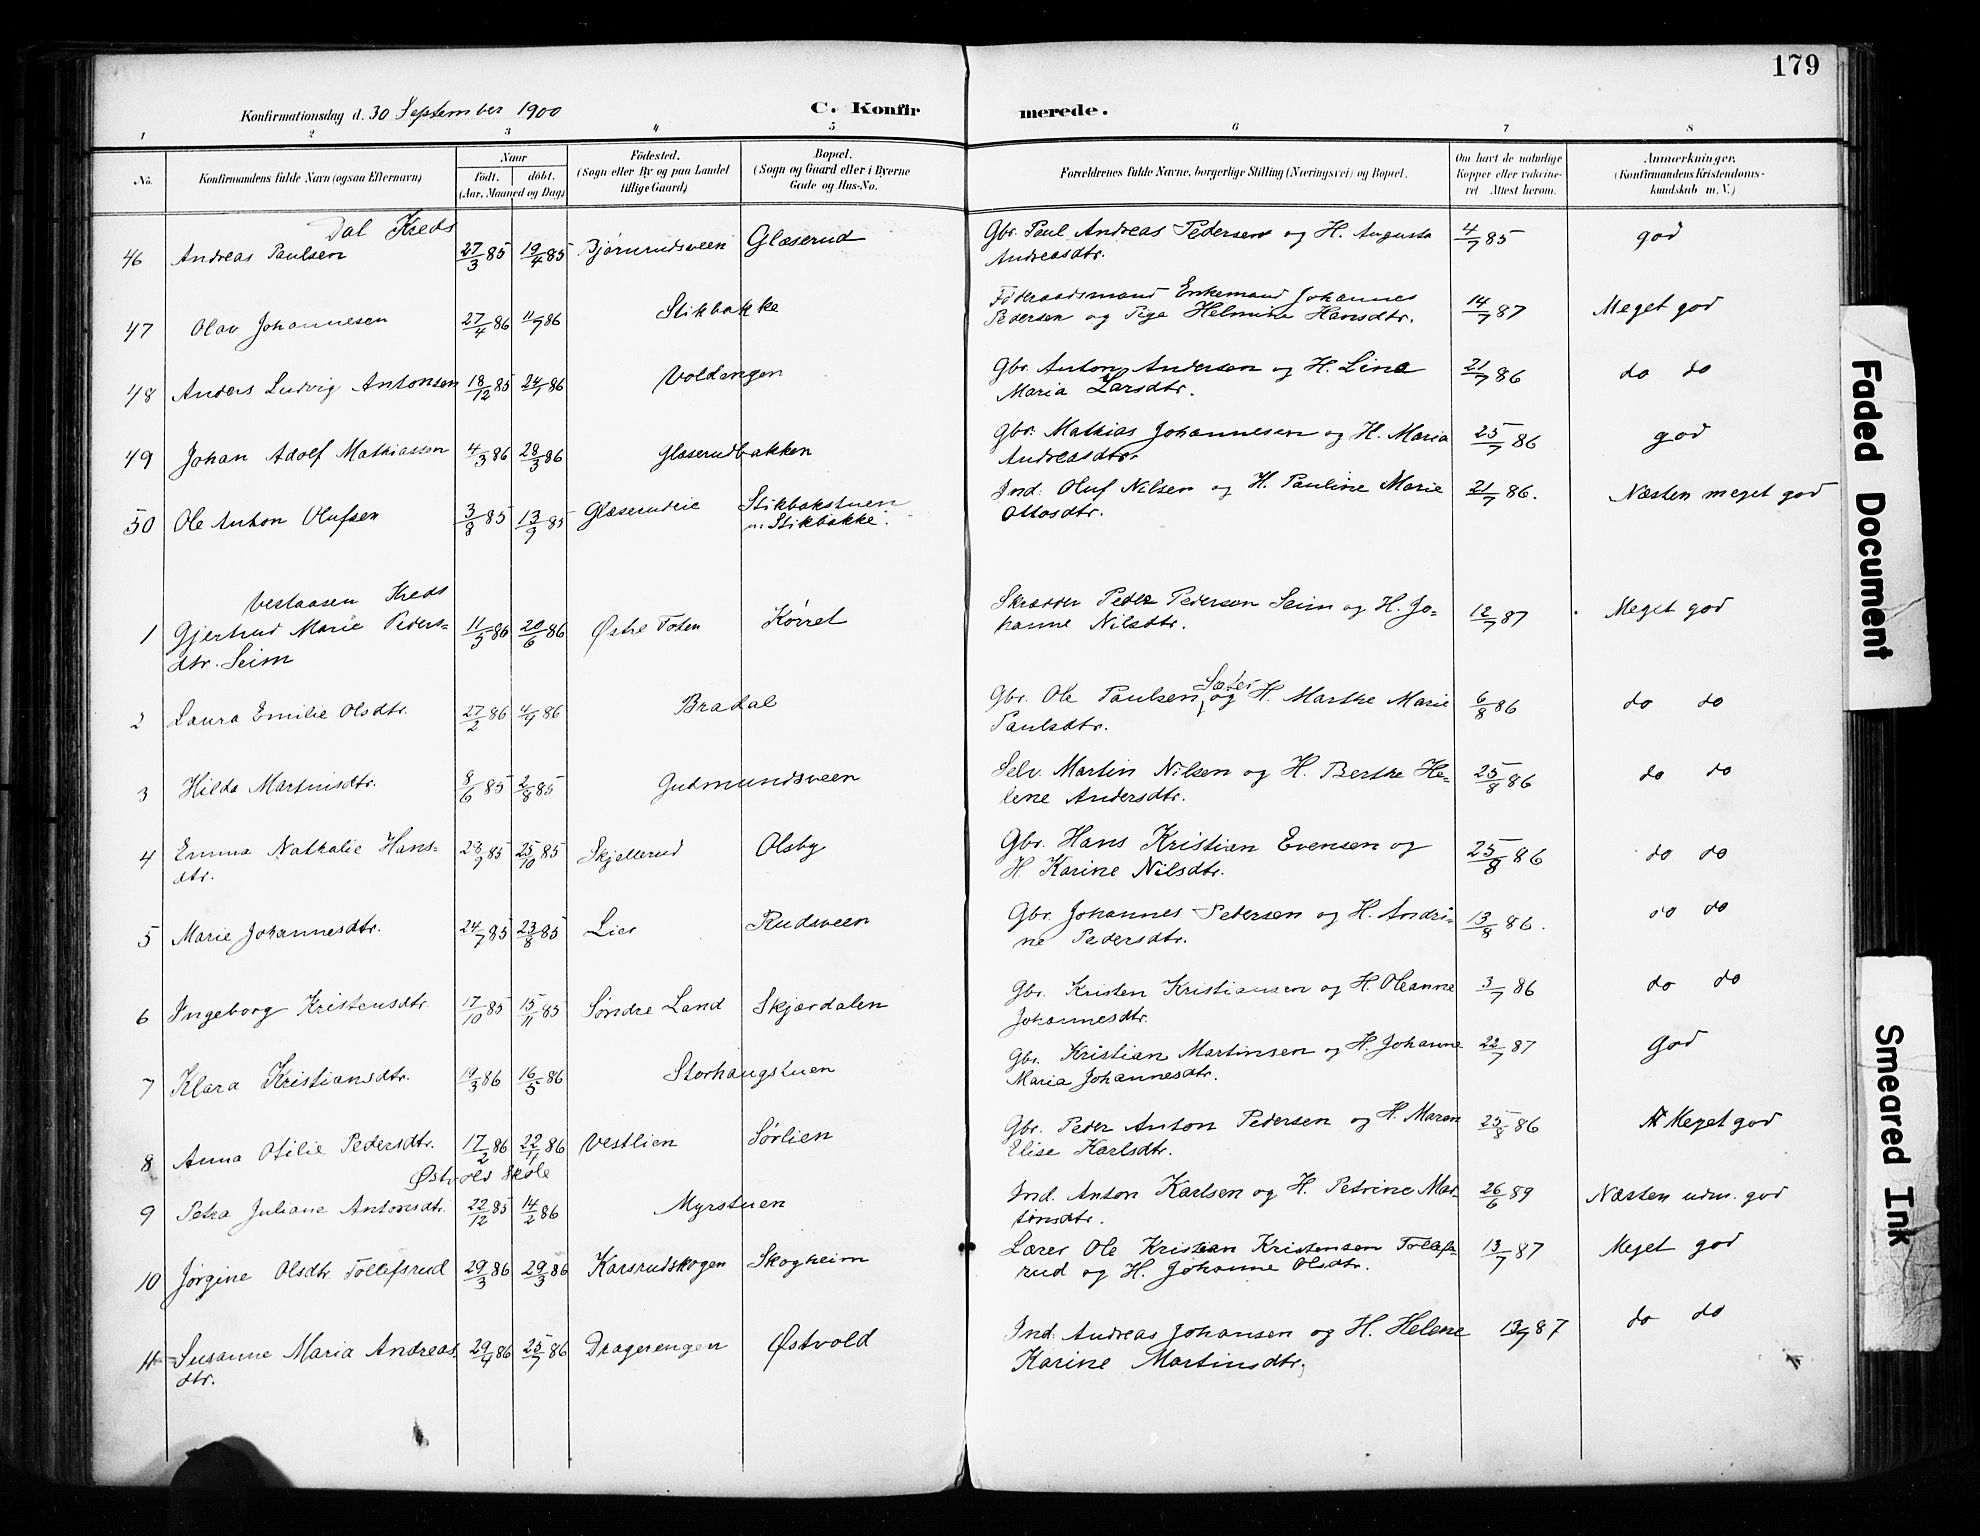 179
Konfirmationsdag d. 30 September 1900
C. Konfirmerede.
1 2 3 4 5 6 7 8
No. Konfirmandens fulde Navn (ogsaa Efternavn) Naar födt. döbt. (Aar, Maaned og Dag) Födested. (Sogn eller By og paa Landet tillige Gaard) Bopæl. (Sogn og Gaard eller i Byerne Gade og Hus-No. Forældrenes fulde Navne, borgerlige Stilling (Næringsvei) og Bopæl. Om havt de naturlige Kopper eller vaccineret Attest herom. Anmærkninger. (Konfirmandens Kristendomskundskab m. V.)
Dal Kreds
46 Andreas Paulsen 27/3 85 19/4 85 Bjørnrudsveen Glæserud Gbr. Paul Andreas Pedersen og H. Augusta 4/7 85 god
Andreasdtr.
47 Olav Johannesen 27/4 86 11/7 86 Stikbakke Föderaadsmand Enkemand Johannes 14/7 87 Meget god
Pedersen og Pige Helmine Hansdtr.
48 Anders Ludvig Antonsen 18/12 85 24/1 86 Voldengen Gbr. Anton Andersen og H. Lina 21/7 86 do do
Maria Larsdtr.
49 Johan Adolf Mathiassen 4/3 86 28/3 86 Glæserudbakken Gbr. Mathias Johannesen og H. Maria 25/7 86 god
Andreasdtr.
50 Ole Anton Olufsen 3/8 85 13/9 85 Glæserudeie Stikbakstuen Ind. Oluf Nilsen og H. Pauline Marie 21/7 86. Næsten meget god
u. Stikbakke. Ottosdtr.
Vestaasen Kreds
1 Gjertrud Marie Peders- 11/5 86 20/6 86 Østre Toten Körret Skrædder Peder Pedersen Seim og H. Jo- 12/7 87 Meget god
dtr. Seim hanne Nilsdtr.
2 Laura Emilie Olsdtr. 27/2 86 4/4 86 Bradal Gbr. Ole Paulsen Sæter og H. Marthe Marie 6/8 86 do do
Paulsdtr.
3 Hilda Martinsdtr. 8/6 85 2/8 85 Gudmundsveen Selv. Martin Nilsen og H. Berthe He- 25/8 86 do do
lene Andersdtr.
4 Emma Nathalie Hans- 28/9 85 25/10 85 Skjellerud Olsby Gbr. Hans Kristian Evensen og 25/8 86 do do
dtr. H. Karine Nilsdtr.
5 Marie Johannesdtr. 24/7 85 23/8 85 Lier Rudsveen Gbr. Johannes Pedersen og H. Andri- 13/8 86. do do
ne Pedersdtr.
6 Ingeborg Kristensdtr. 17/10 85 15/11 85 Søndre Land Skjærdalen Gbr. Kristen Kristiansen og H. Oleanne 3/7 86 do do
Johannesdtr.
7 Klara Kristiansdtr. 19/3 86 16/5 86 Storhaugstuen Gbr. Kristian Martinsen og H. Johanne 22/7 87 god
Maria Johannesdtr.
8 Anna Otilie Pedersdtr. 17/2 86 22/4 86 Vestlien Sörlien Gbr. Peder Anton Pedersen og H. Maren 25/8 86 Meget god
Elise Karlsdtr.
Østvold Skole
9 Petra Juliane Antonsdtr. 22/12 85 14/2 86 Myrstuen Ind. Anton Karlsen og H. Petrine Mar- 26/6 89 Næsten udm. god
tinsdtr.
10 Jørgine Olsdtr. Tollefsrud 29/3 86 29/3 86 Karsrudskogen Skogheim Lærer Ole Kristian Kristensen Tollefs- 13/7 87 Meget god
rud og H. Johanne Olsdtr.
11 Susanne Maria Andreas- 29/4 86 25/7 86 Dragerengen Østvold Ind. Andreas Johansen og H. Helene 13/7 87 do do
dtr. Karine Martinsdtr.
Faded Document
Smeared Ink